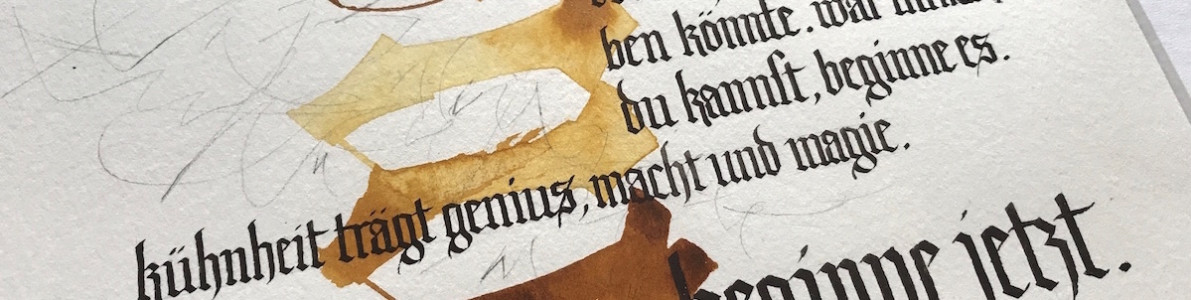 ben könnte. was immer
du kannst, beginne es.
kühnheit trägt genius, macht und magie.
beginne jetzt.